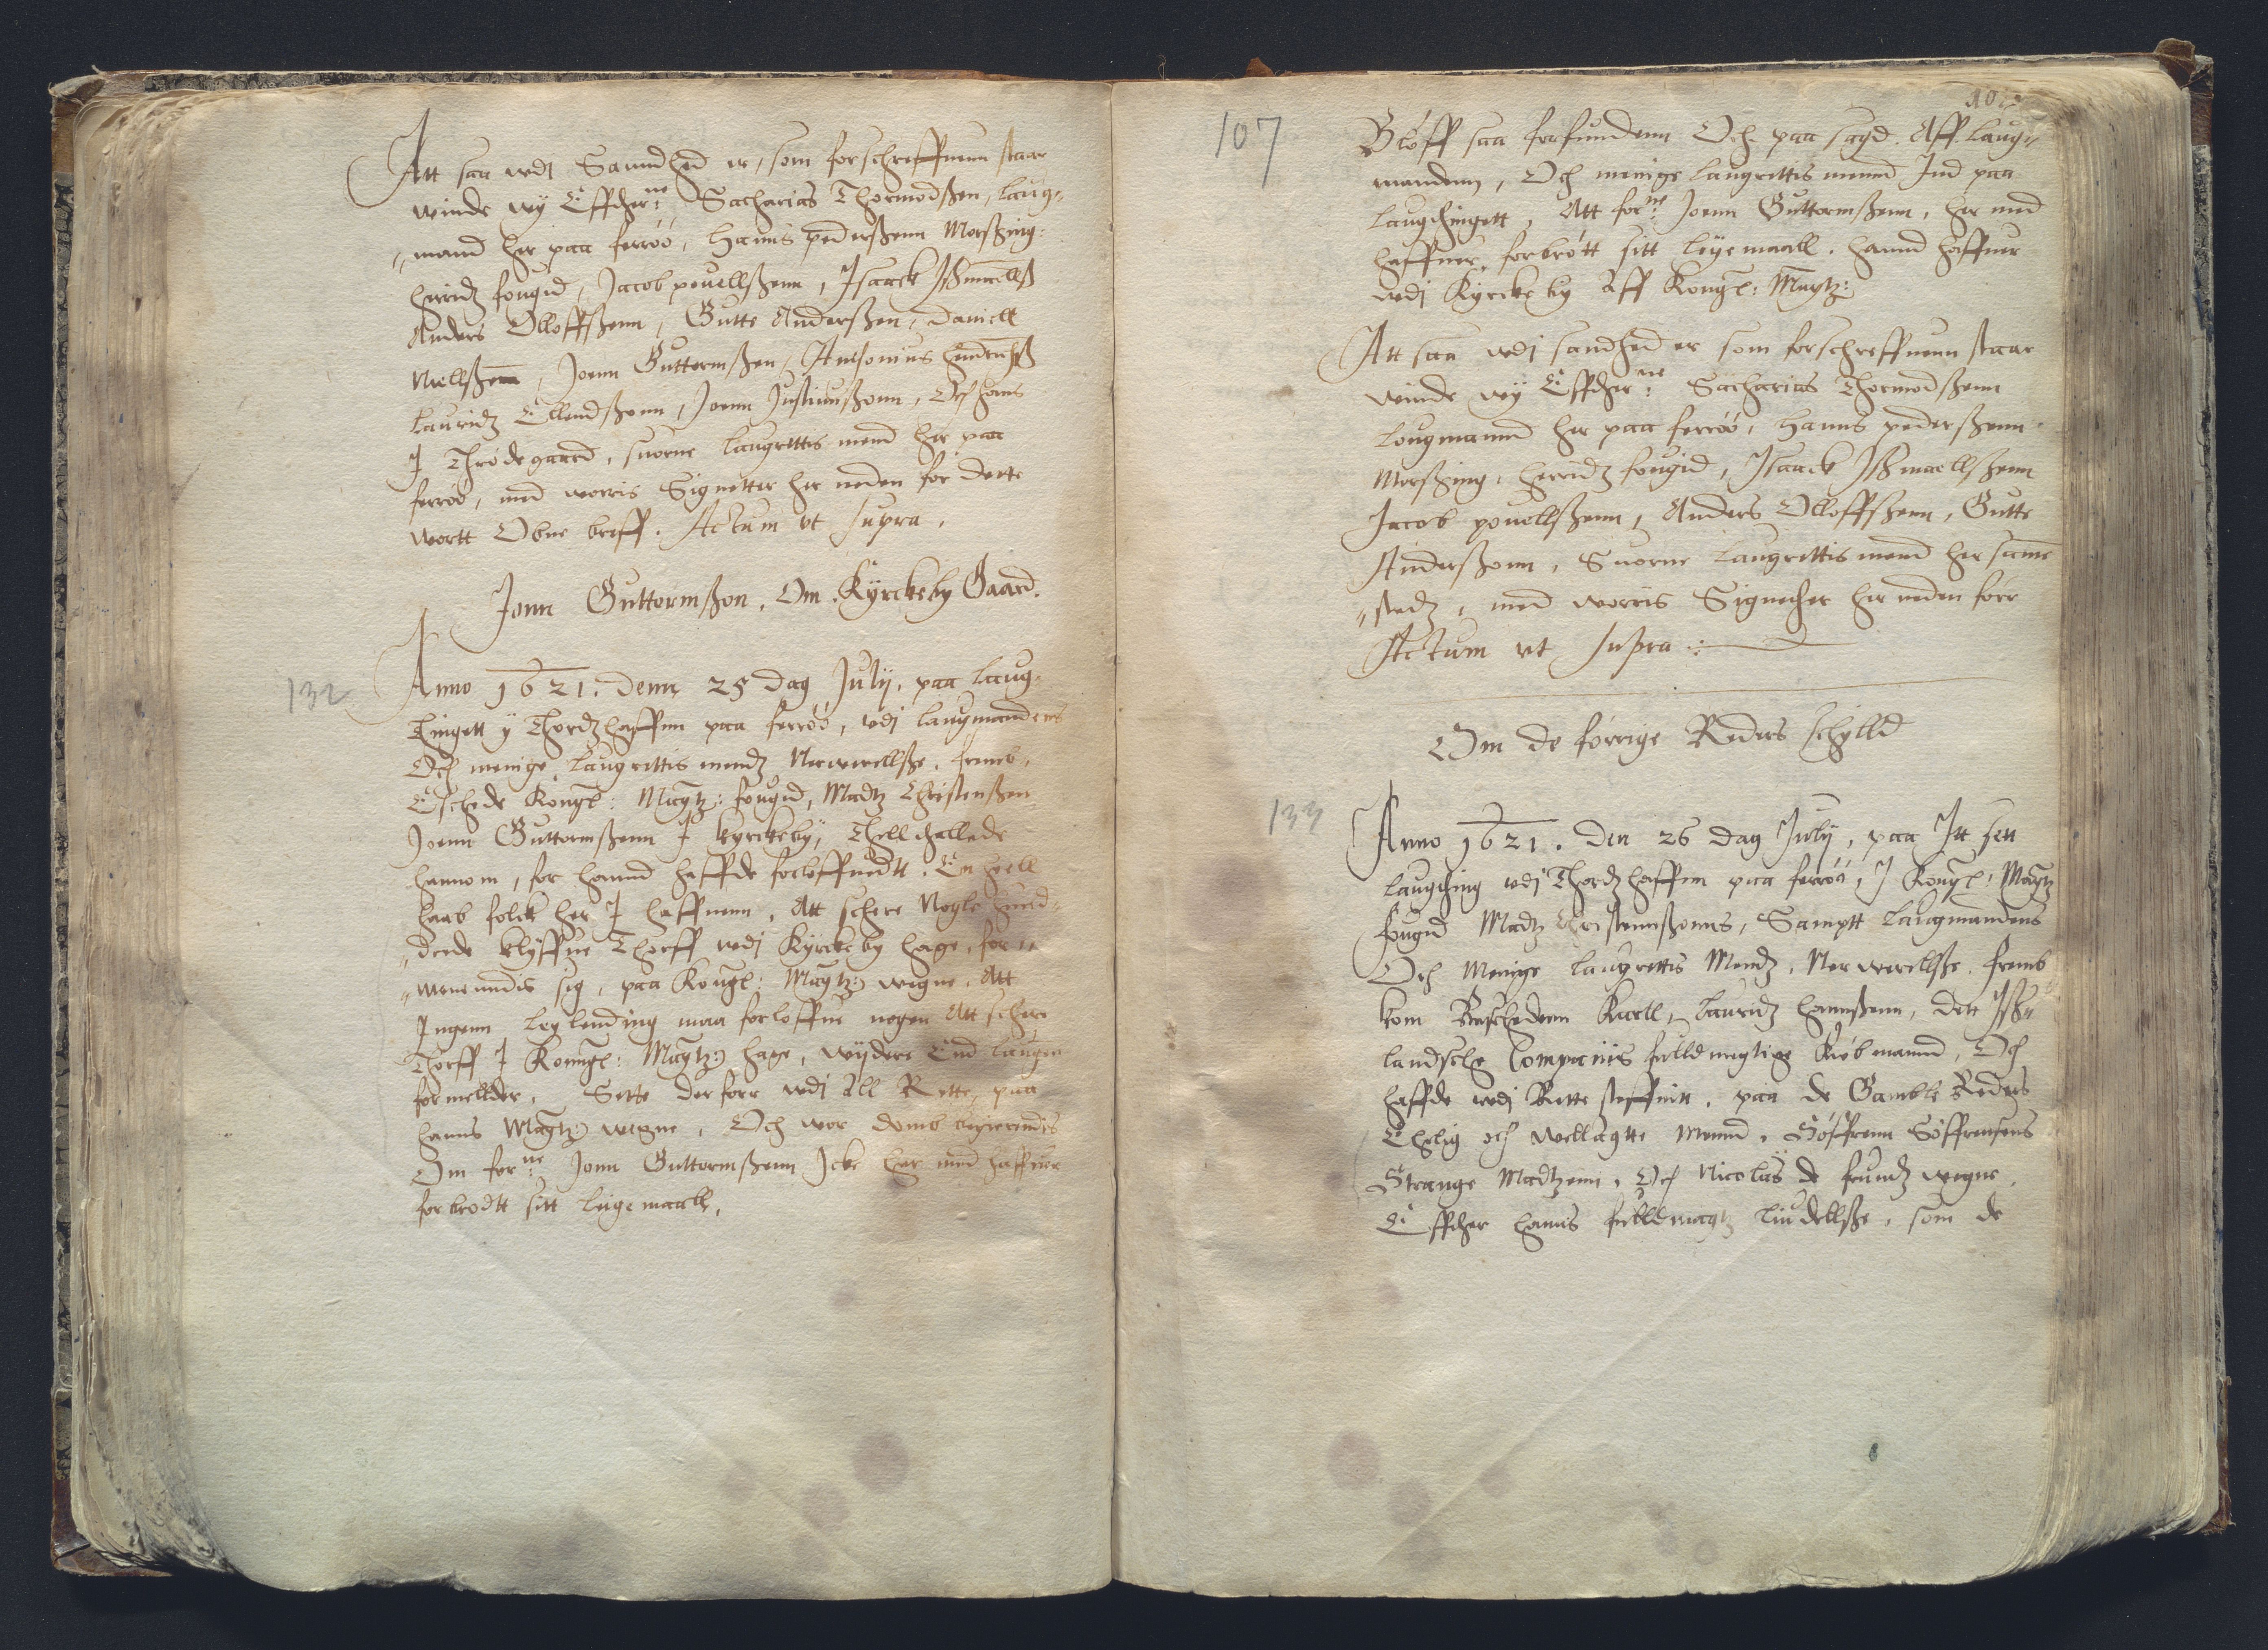 Att saa wdj Sanndhed er, som forschreffnenn staar
winde wy Effther:ne Sacharias Thormodßen, laug-
mand her paa ferröö, Hanns pederßenn Morßing:
herridz fougid, Jacob pouellßenn, Jsaack Jßmaellß
Anders Olloffßenn, Gutte Anderßen, Daniell
Niellßenn, Joenn Guttormßen, Antonius Hendrichß
Lauridz Ellendßenn, Joenn Justinußonn, Och hans
J Thrödegaard, suorne laugrettis mend her paa
ferröö, med worris Signetter her neden for dette
wortt Obne breff. Actum vt supra.
Jonn Guttormßon, Om Kyrckeby Gaard.
132
Anno 1621. denn 25 dag Julij, paa laug-
thingett y Thordzhaffnn paa ferröö, wdj laugmandens
Och menige laugrettis mendz Nerwerellße, fremb-
Eschede Kongl: Maytz: fougid, Madtz Christenßen
Joenn Guttormßenn J kyrckeby, Thilltallede
hannom, for hannd haffde forloffuedtt. En heell
haab folck her J haffnenn, Att schere Nogle hund-
derde klyffue Thorff wdj Kyrckeby hage, for-
menendis sig, paa Kongl: Maytz: wegne, Att
Jngenn leylending maa forloffue nogen Att schere
Thorff J Konngl: Maytz: hage, wyderre End laugen
formellder. Sette derforr wdj All Rette, paa
hanns Maytz: wegne, Och wor domb begierendis
Om for:ne Jonn Guttormßenn Jcke her med haffuer
forbrodtt sitt leigemaall.
107
Blöff saa forfundenn Och paa sagd. Aff laug-
mandenn, Och menige laugrettis mennd Ind paa
laugthingett, Att for:ne Joenn Guttormßenn, her med
haffuer, forbrött sitt leyemaall. hannd haffuer
wdj Kyrckeby Aff Kongl: Maytz:
Att saa wdj sandhed er som forschreffnenn staar
winde wy Effther:ne Sacharias Thormodßenn
Lougmannd her paa ferröö, Hanns pederßenn
Morßing: herridz fougid, Jsaack Jßmaellßenn
Jacob pouellßenn, Anders Olloffßenn, Gutte
Anderßonn, Suorne laugrettis mend her samme
stedz, med worris Signether her neden förr
Actum vt supra
Om de förrige Reders schylld
133
Anno 1621. Den 26 dag Julij, paa Jtt sett
laugthing wdj Thordzhaffnn paa ferröö, J Kongl: Maytz
fougid Madtz Christennßonns, Samptt laugmandens
Och Menige laugrettis Mendz, Nerwerellße. fremb
kom Beschedenn Karll, Lauridz Hannßenn, Dett Jß-
landsche Companiis fulldmegtige Kiöbmannd, Och
haffde wdj Rette steffnitt, paa de Gamble Reders
Ehrlig och wellagtte Mennd, Söffrenn Söffrensens
Strange Madtzenn, Och Nicolas de frundz wegne.
Effther hanns fulldmagtz liudellße, som de